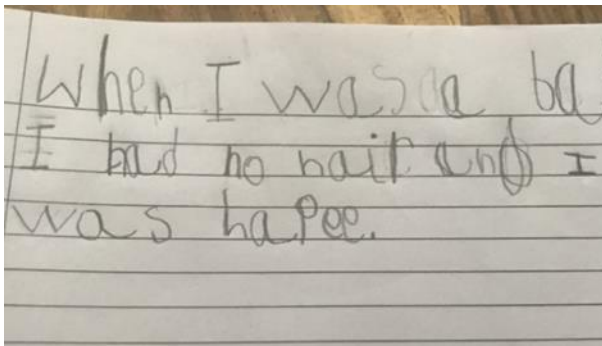 When I was a ba
I had no hair and I
was hapee.